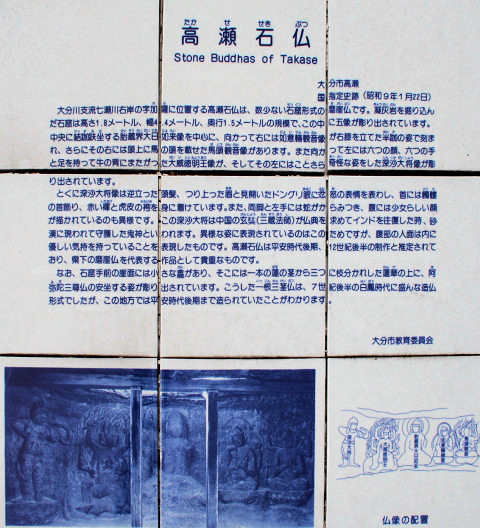 高瀬石仏
Stone Buddhas of Takase
大分市高瀬
国指定史跡(昭和9年1月22日)
大分川支流七瀬川右岸の字加羅に位置する高瀬石仏は、数少ない石窟形式の磨崖仏です。凝灰岩を掘り込ん
だ石窟は高さ1.8メートル、幅4.4メートル、奥行1.5メートルの規模で、この中に五像が彫り出されています。
中央に結跏趺坐する胎蔵界大日如来像を中心に、向かって右には如意輪観音像が右膝を立てた半跏の姿で刻ま
れ、さらにその右には頭上に馬の頭を載せた馬頭観音像があります。また向かって左には六つの顔、六つの手
と足を持って牛の背にまたがった大威徳明王像が、そしてその左にはことさら奇怪な姿をした深沙大将像が彫
り出されています。
とくに深沙大将像は逆立った頭髪、つり上った眉と見開いたドングリ眼に忿怒の表情を表わし、首には髑髏
の首飾り、赤い褌と虎皮の袴を身に着けています。また、両脚と左手には蛇がからみつき、腹には少女らしい顔
が描かれているのも異様です。この深沙大将は中国の玄奘(三蔵法師)が仏典を求めてインドを往復した時、砂
漠に現われて守護した鬼神といわれます。異様な姿に表現されているのはこのためですが、腹部の人面は内に
優しい気持を持っていることを表現したものです。高瀬石仏は平安時代後期、12世紀後半の制作と推定されて
おり、県下の磨崖仏を代表する作品として貴重なものです。
なお、石窟手前の崖面には小さな龕があり、そこには一本の蓮の茎から三つに枝分かれした蓮華の上に、阿
弥陀三尊仏の安坐する姿が彫り出されています。こうした一根三茎仏は、7世紀後半の白鳳時代に盛んな造仏
形式でしたが、この地方では平安時代後期まで造られていたことがわかります。
大分市教育委員会
深沙大将
大威徳明王
胎蔵界大日如来
如意輪観音
馬頭観音
仏像の配置